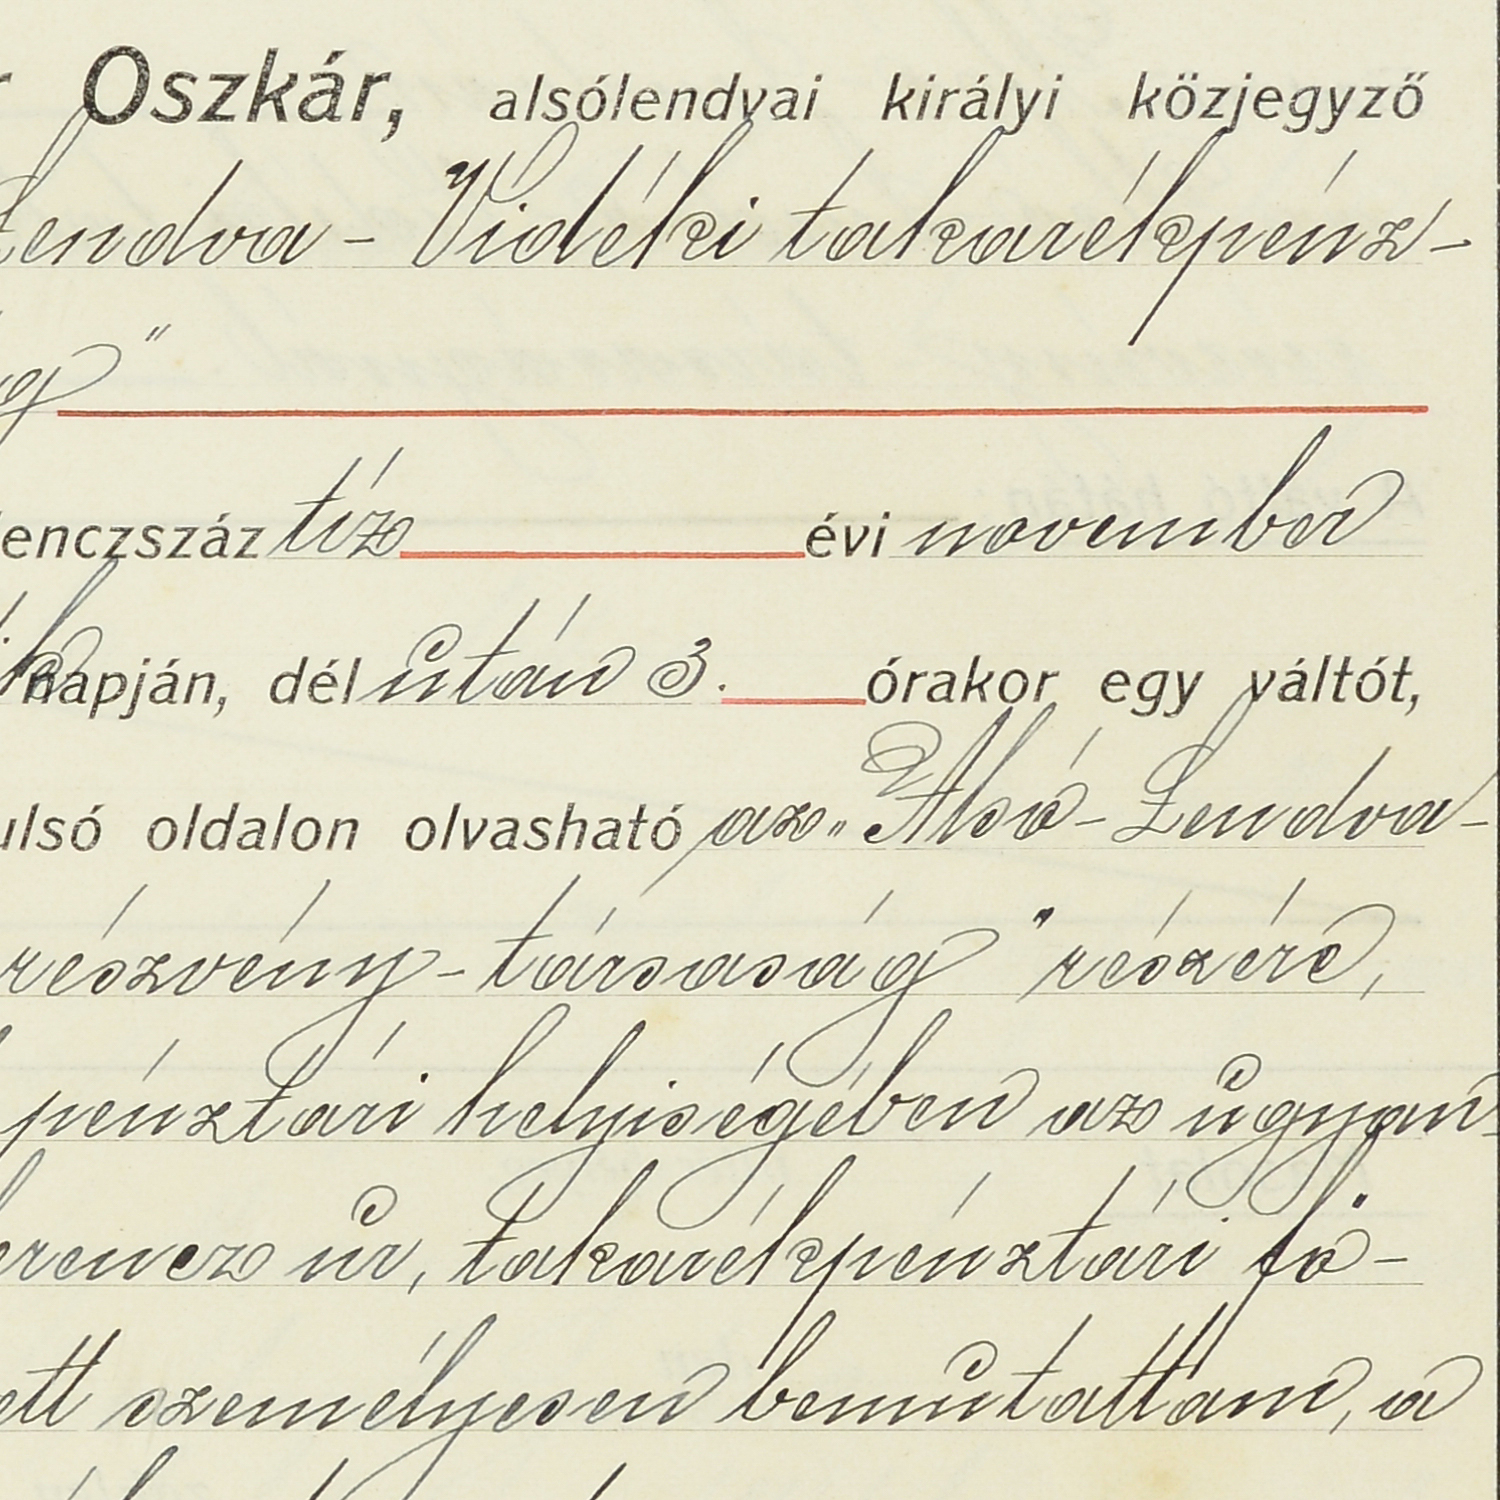 r Oszkár, alsólendvai királyi közjegyző
Lendva - Vidéki takarékpénz-
g"
enczszáz tíz évi november
napján, dél után 3. órakor egy váltót,
ulsó oldalon olvasható az „Alsó-Lendva-
részvény-társaság" részére,
pénztári helyiségében az ugyan-
erencz úr, takarékpénztári fő-
ett személyesen bemutattam, a